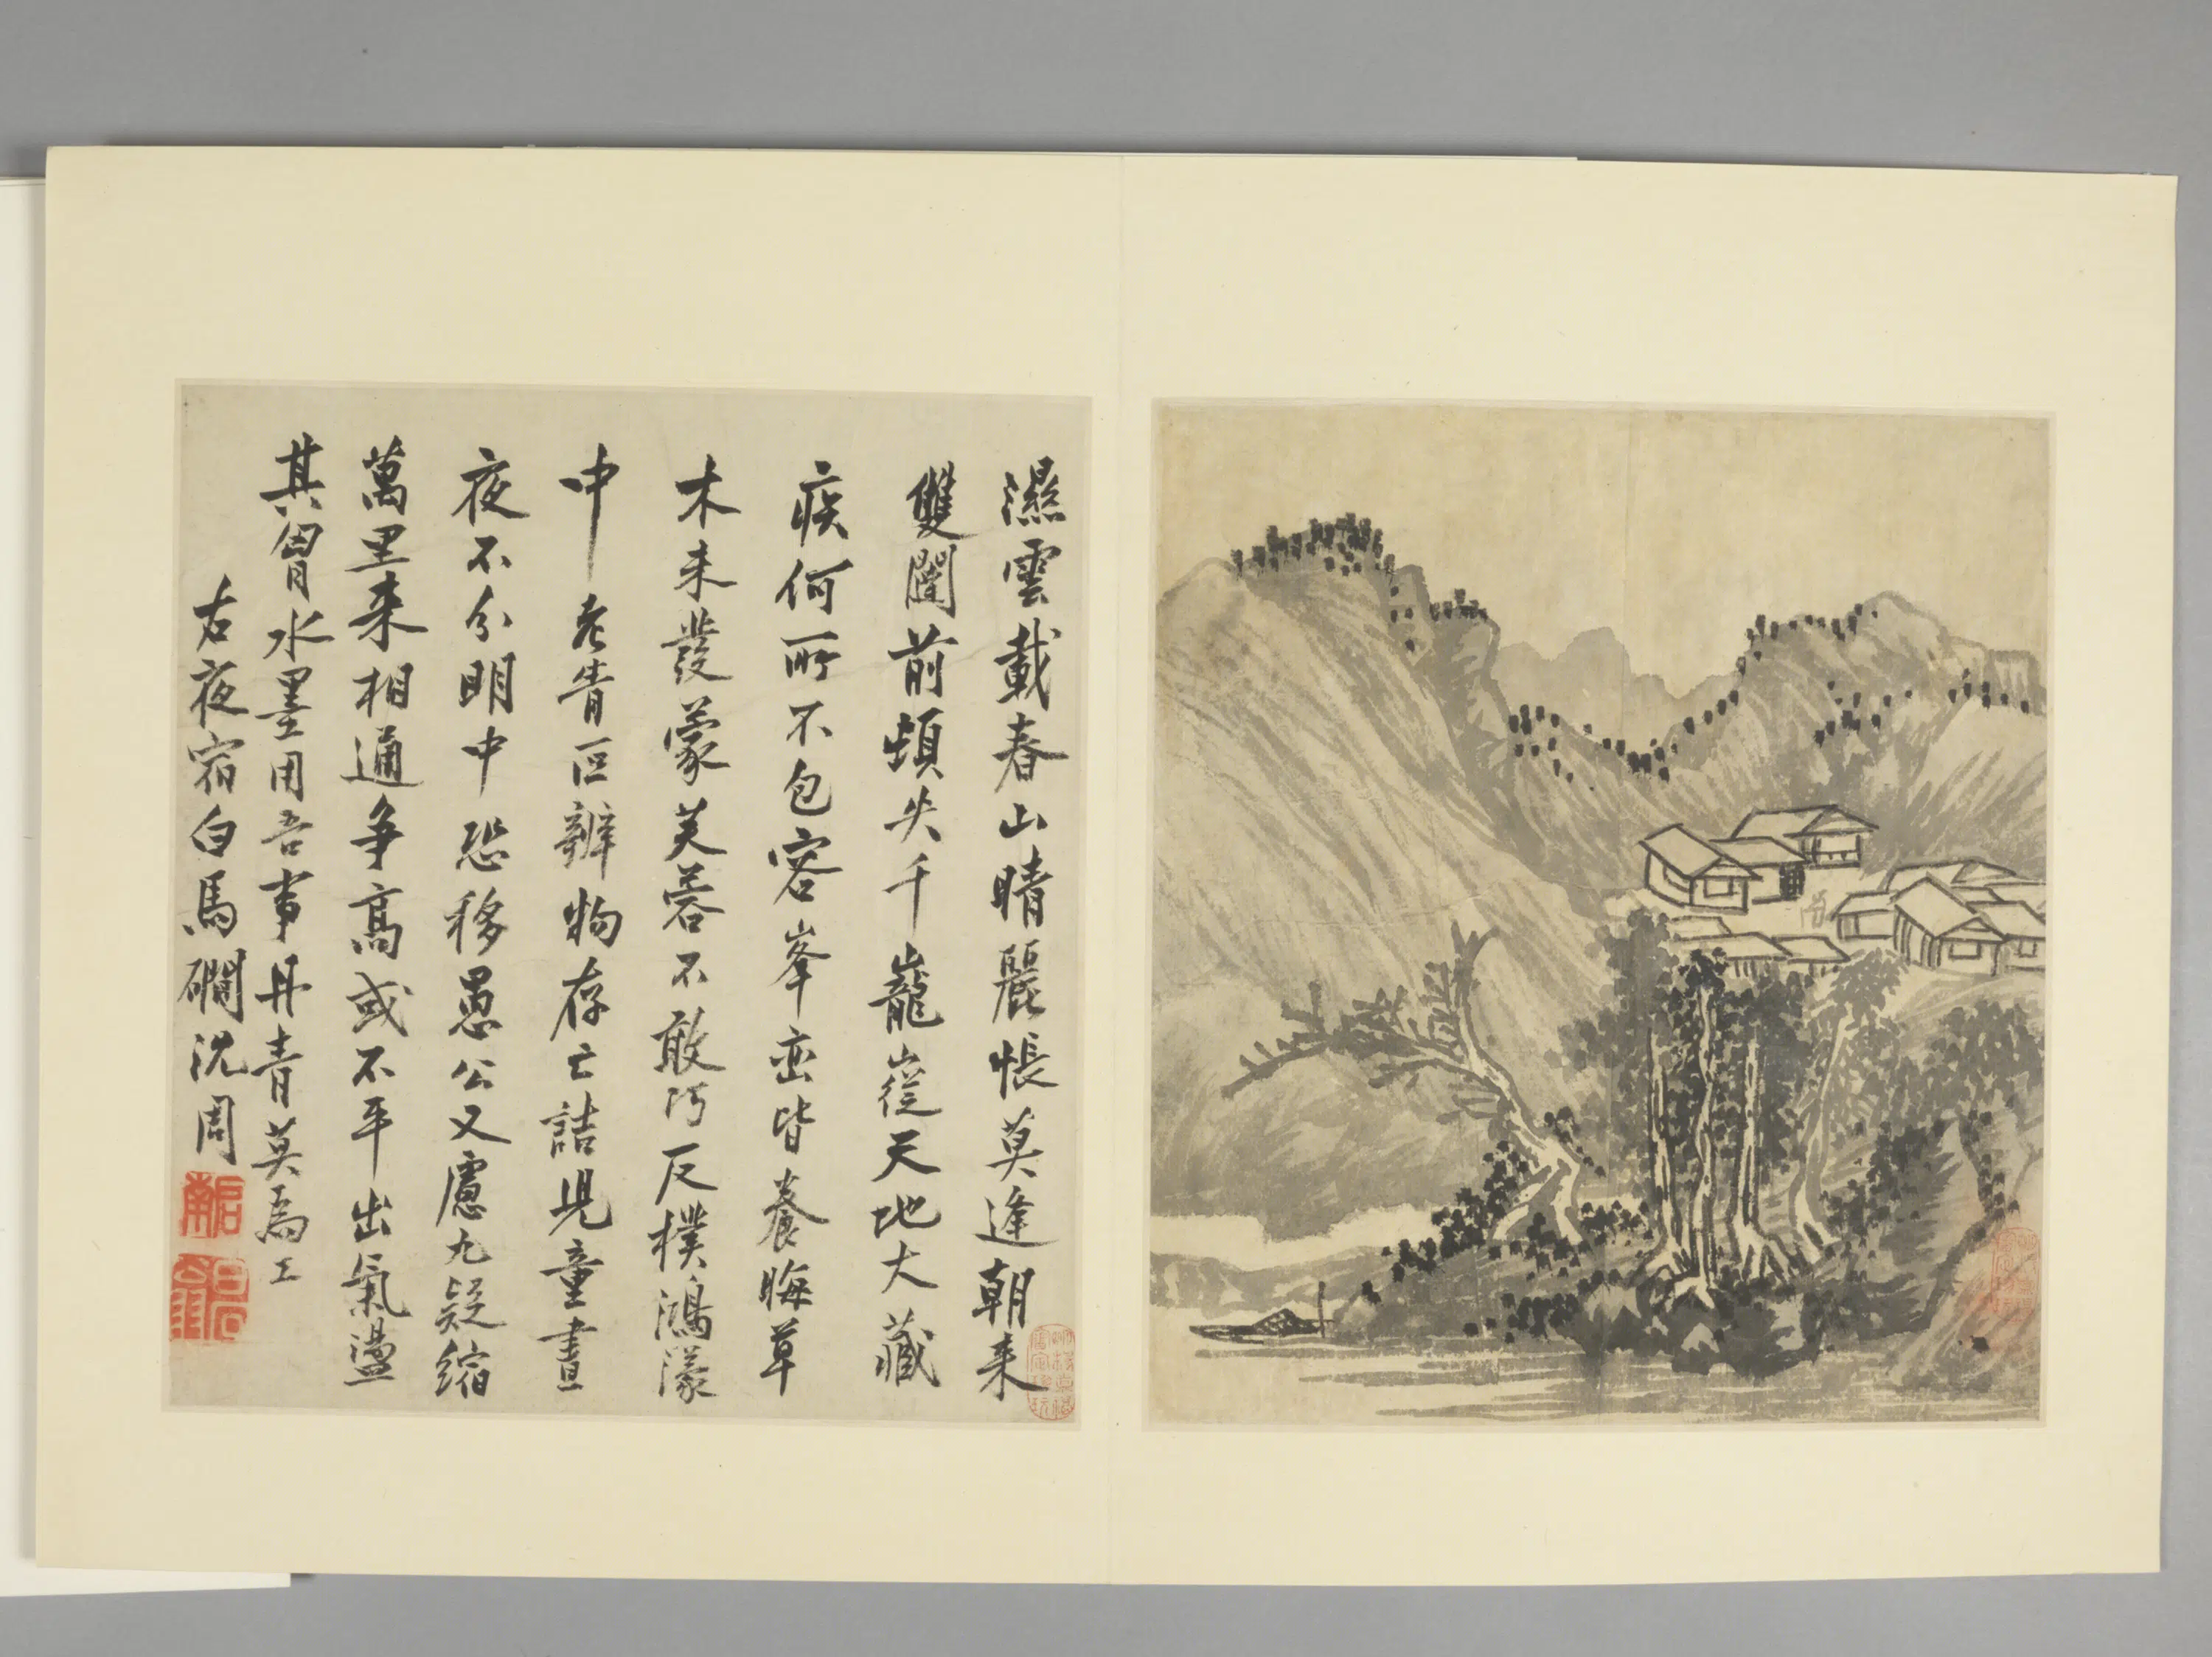 濕雲載春山晴麗悵莫逢朝来
雙闥前頓失千巃嵸天地大藏
疾何所不包容峯巒皆養晦草
木未發蒙芙蓉不敢污反樸鴻濛
中老眚叵辨物存亡詰児童晝
夜不分明中恐移愚公又慮九疑縮
萬里来相通爭高或不平出氣盪
其胷水墨用吾事丹青莫為工
右夜宿白馬磵沈周
啟南